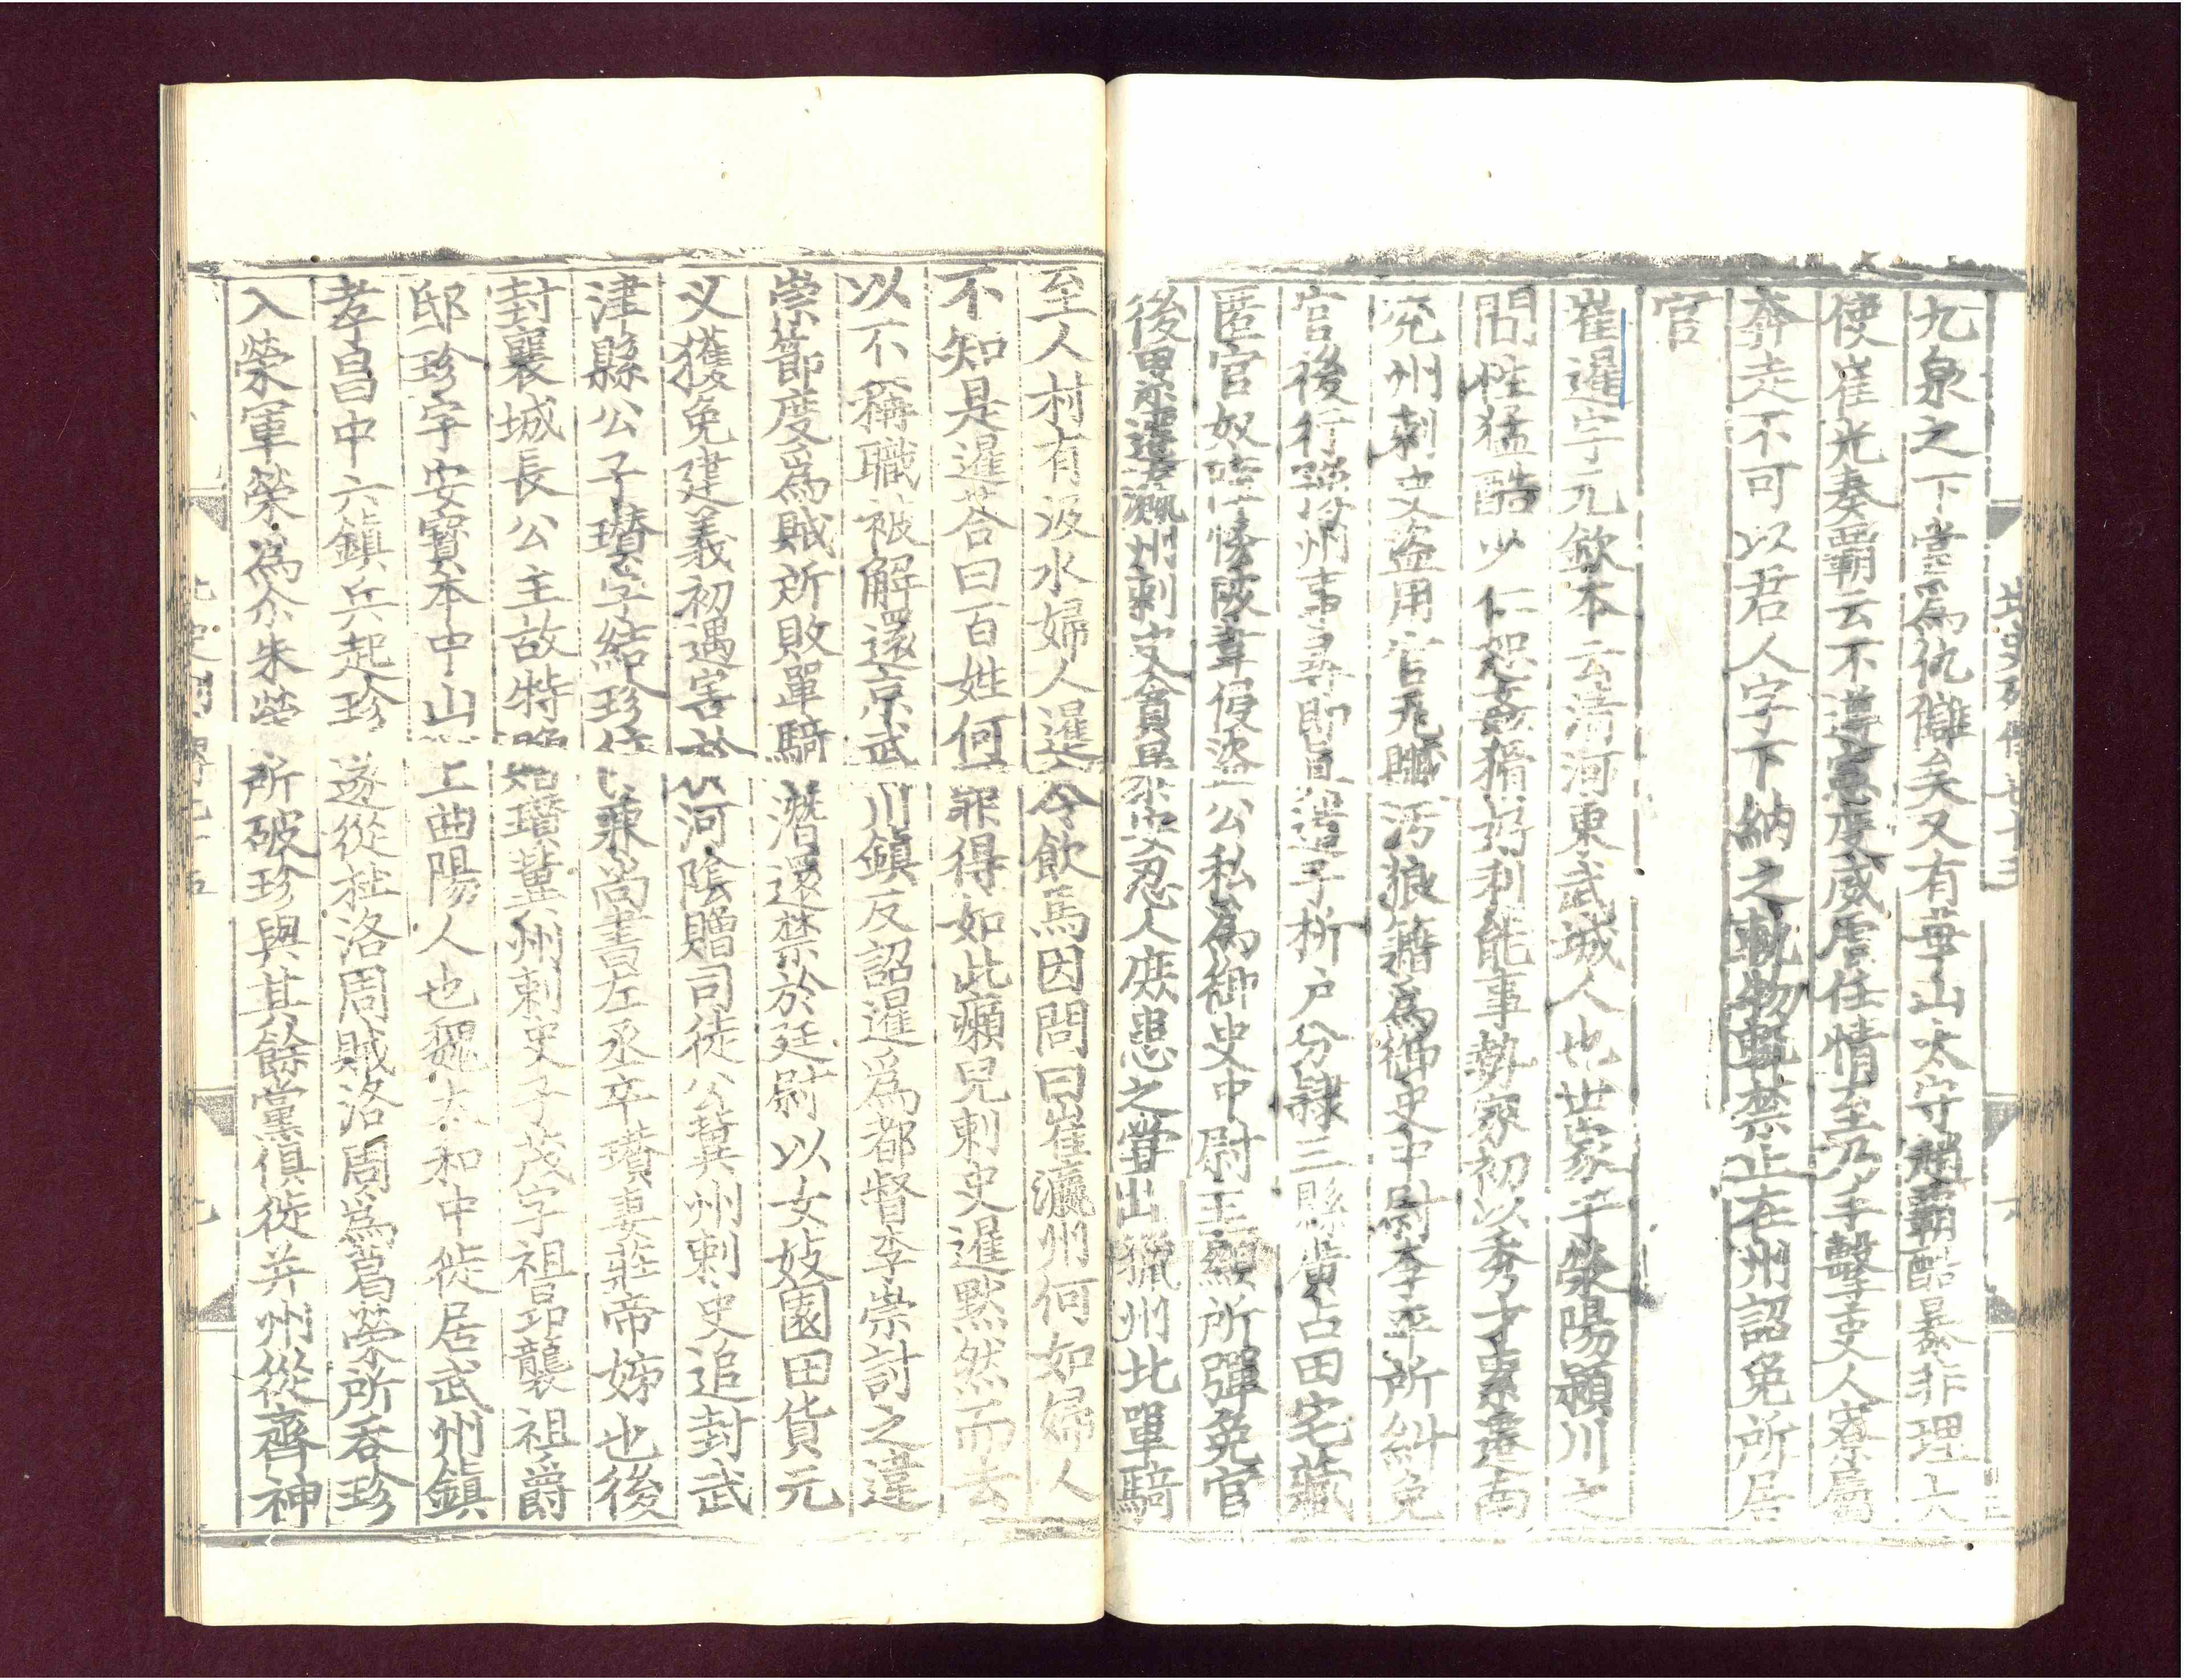 北史列傳七十五
九泉之下當爲仇讎矣又有華山太守趙霸酷暴非理大
使崔光奏霸云不遵憲度威虐任情至乃手擊吏人寮屬
奔走不可以君人字下納之軌物輒禁止在州詔免所居
官
崔暹字元欽本云清河東武城人也世家于滎陽潁川之
間性猛酷少仁恕姦猾好利能事勢家初以秀才累遷南
兖州刺史盗用官瓦贓汚狼籍爲御史中尉李平所糾免
官後行豫州事尋即眞遣子析户分隷三縣廣占田宅藏
匿官奴障恡陂葦侵盗公私爲御史中尉王顯所彈免官
後累遷瀛州刺史貪暴安忍人庶患之嘗出獵州北單騎
至人村有汲水婦人暹令飲馬因問曰崔瀛州何如婦人
不知是暹荅曰百姓何罪得如此癩兒刺史暹默然而去
以不稱職被解還京武川鎮反詔暹爲都督李崇討之違
崇節度爲賊所敗單騎潛還禁於廷尉以女妓園田貨元
义獲免建義初遇害於河陰贈司徒公冀州刺史追封武
津縣公子瓚字結珍位兼尚書左丞卒瓚妻莊帝姊也後
封襄城長公主故特贈瓚冀州刺史子茂字祖昂襲祖爵
邸珍字安寳本中山上曲陽人也魏太和中徙居武州鎮
孝昌中六鎮兵起珍遂從杜洛周賊洛周爲葛榮所吞珍
入榮軍榮爲尒朱榮所破珍與其餘黨俱徙并州從齊神
北史列傳七十五